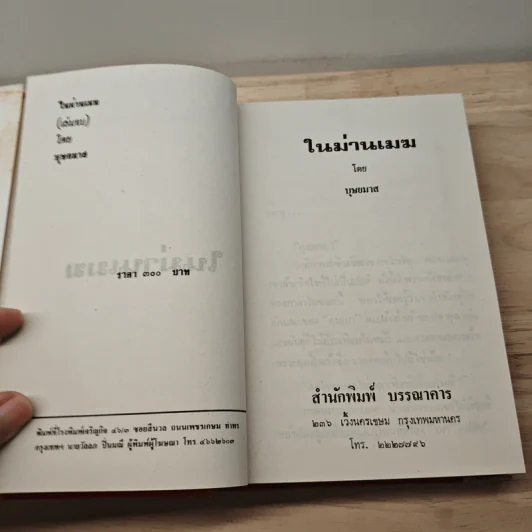 ในม่านเมฆ
(เล่มจบ)
โดย
บุษยมาส
ราคา ๓๐๐ บาท
พิมพ์ที่โรงพิมพ์เจริญกิจ ๔๖/๓ ซอยสีนวล ถนนเพชรเกษม ท่าพระ
กรุงเทพฯ นายวัลลภ ปิ่นมณี ผู้พิมพ์ผู้โฆษณา โทร ๔๖๖๒๖๐๓
ในม่านเมฆ
โดย
บุษยมาส
สำนักพิมพ์ บรรณาคาร
๒๓๖ เวิ้งนครเขษม กรุงเทพมหานคร
โทร. ๒๒๒๗๗๙๖